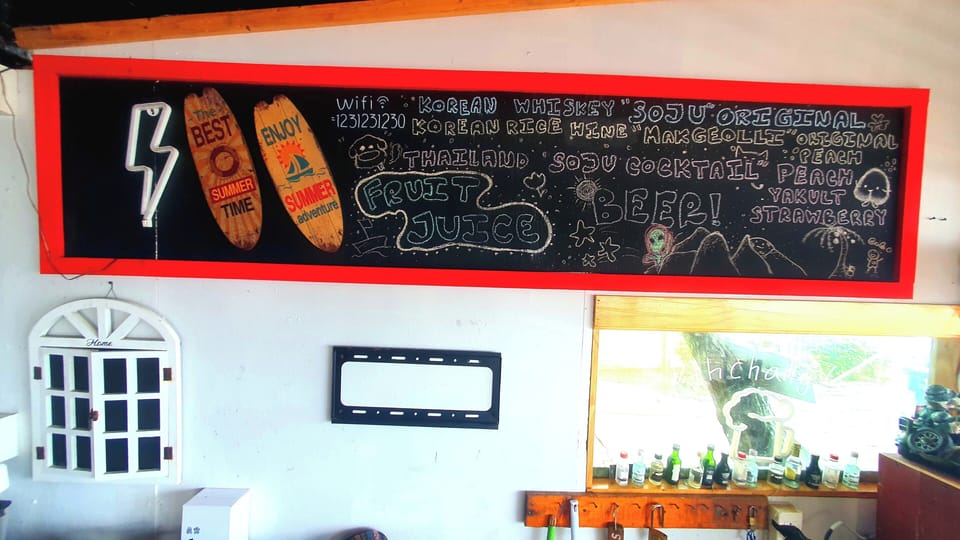 The
BEST
SUMMER
TIME
ENJOY
SUMMER
adventure
wifi
=1231231230
"KOREAN WHISKEY "SOJU" ORIGINAL
KOREAN RICE WINE "MAKGEOLLI" ORIGINAL
PEACH
THAILAND SOJU COCKTAIL" PEACH
YAKULT
STRAWBERRY
FRUIT
JUICE
BEER!
Home